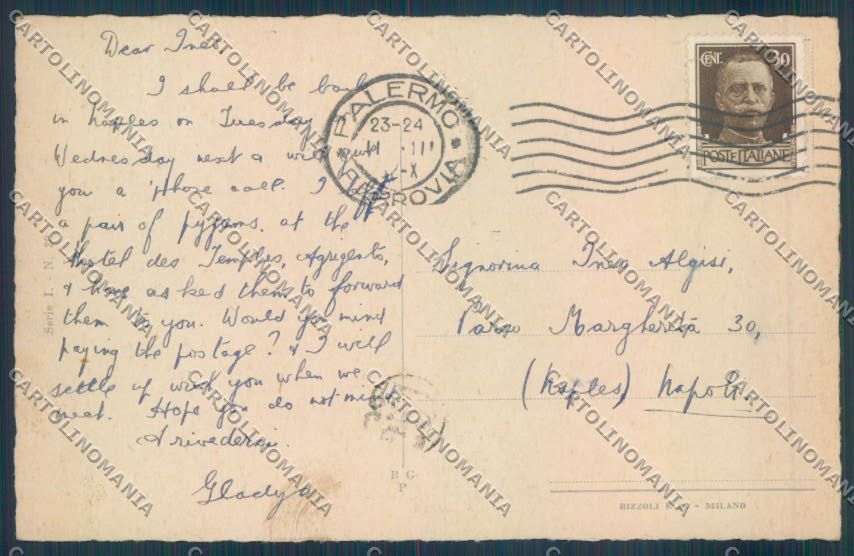 Dear Ines.
I shall be back
in Naples on Tuesday
Wednesday next & will put
you a 'phone call. I left
a pair of pyjams. at the
Hotel des Temples, Agrigento,
& have asked them to forward
them to you. Would you mind
paying the postage? & I will
settle up with you when we
meet. Hope you do not mind
Arivederci.
Gladys
PALERMO
FERROVIA
23-24
III
X
CENT. 30
POSTE ITALIANE
Signorina Ines Algisi,
Parco Margherita 30,
(Naples) Napoli
Serie I. - N.
B G
P
RIZZOLI - MILANO
CARTOLINOMANIA